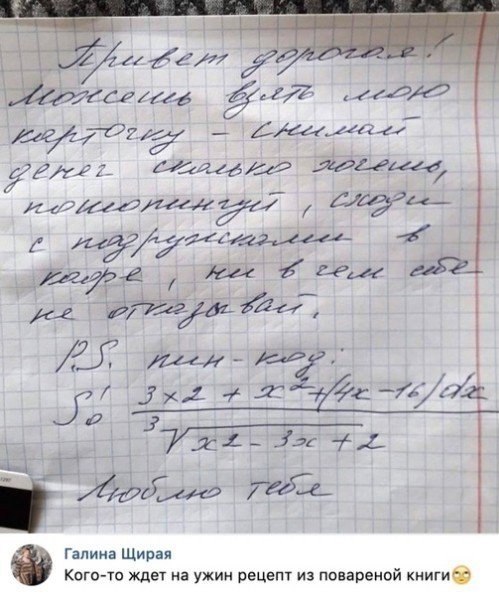 Привет дорогая!
Можешь взять мою
карточку - снимай
денег сколько хочешь,
пошопингуй, сходи
с подружками в
кафе, ни в чем себе
не отказывай.
P.S. пин-код:
∫₀¹ 3x2 + x² + (4x - 16) dx
∛x2 - 3x + 2
Люблю тебя
Галина Щирая
Кого-то ждет на ужин рецепт из повареной книги🙄